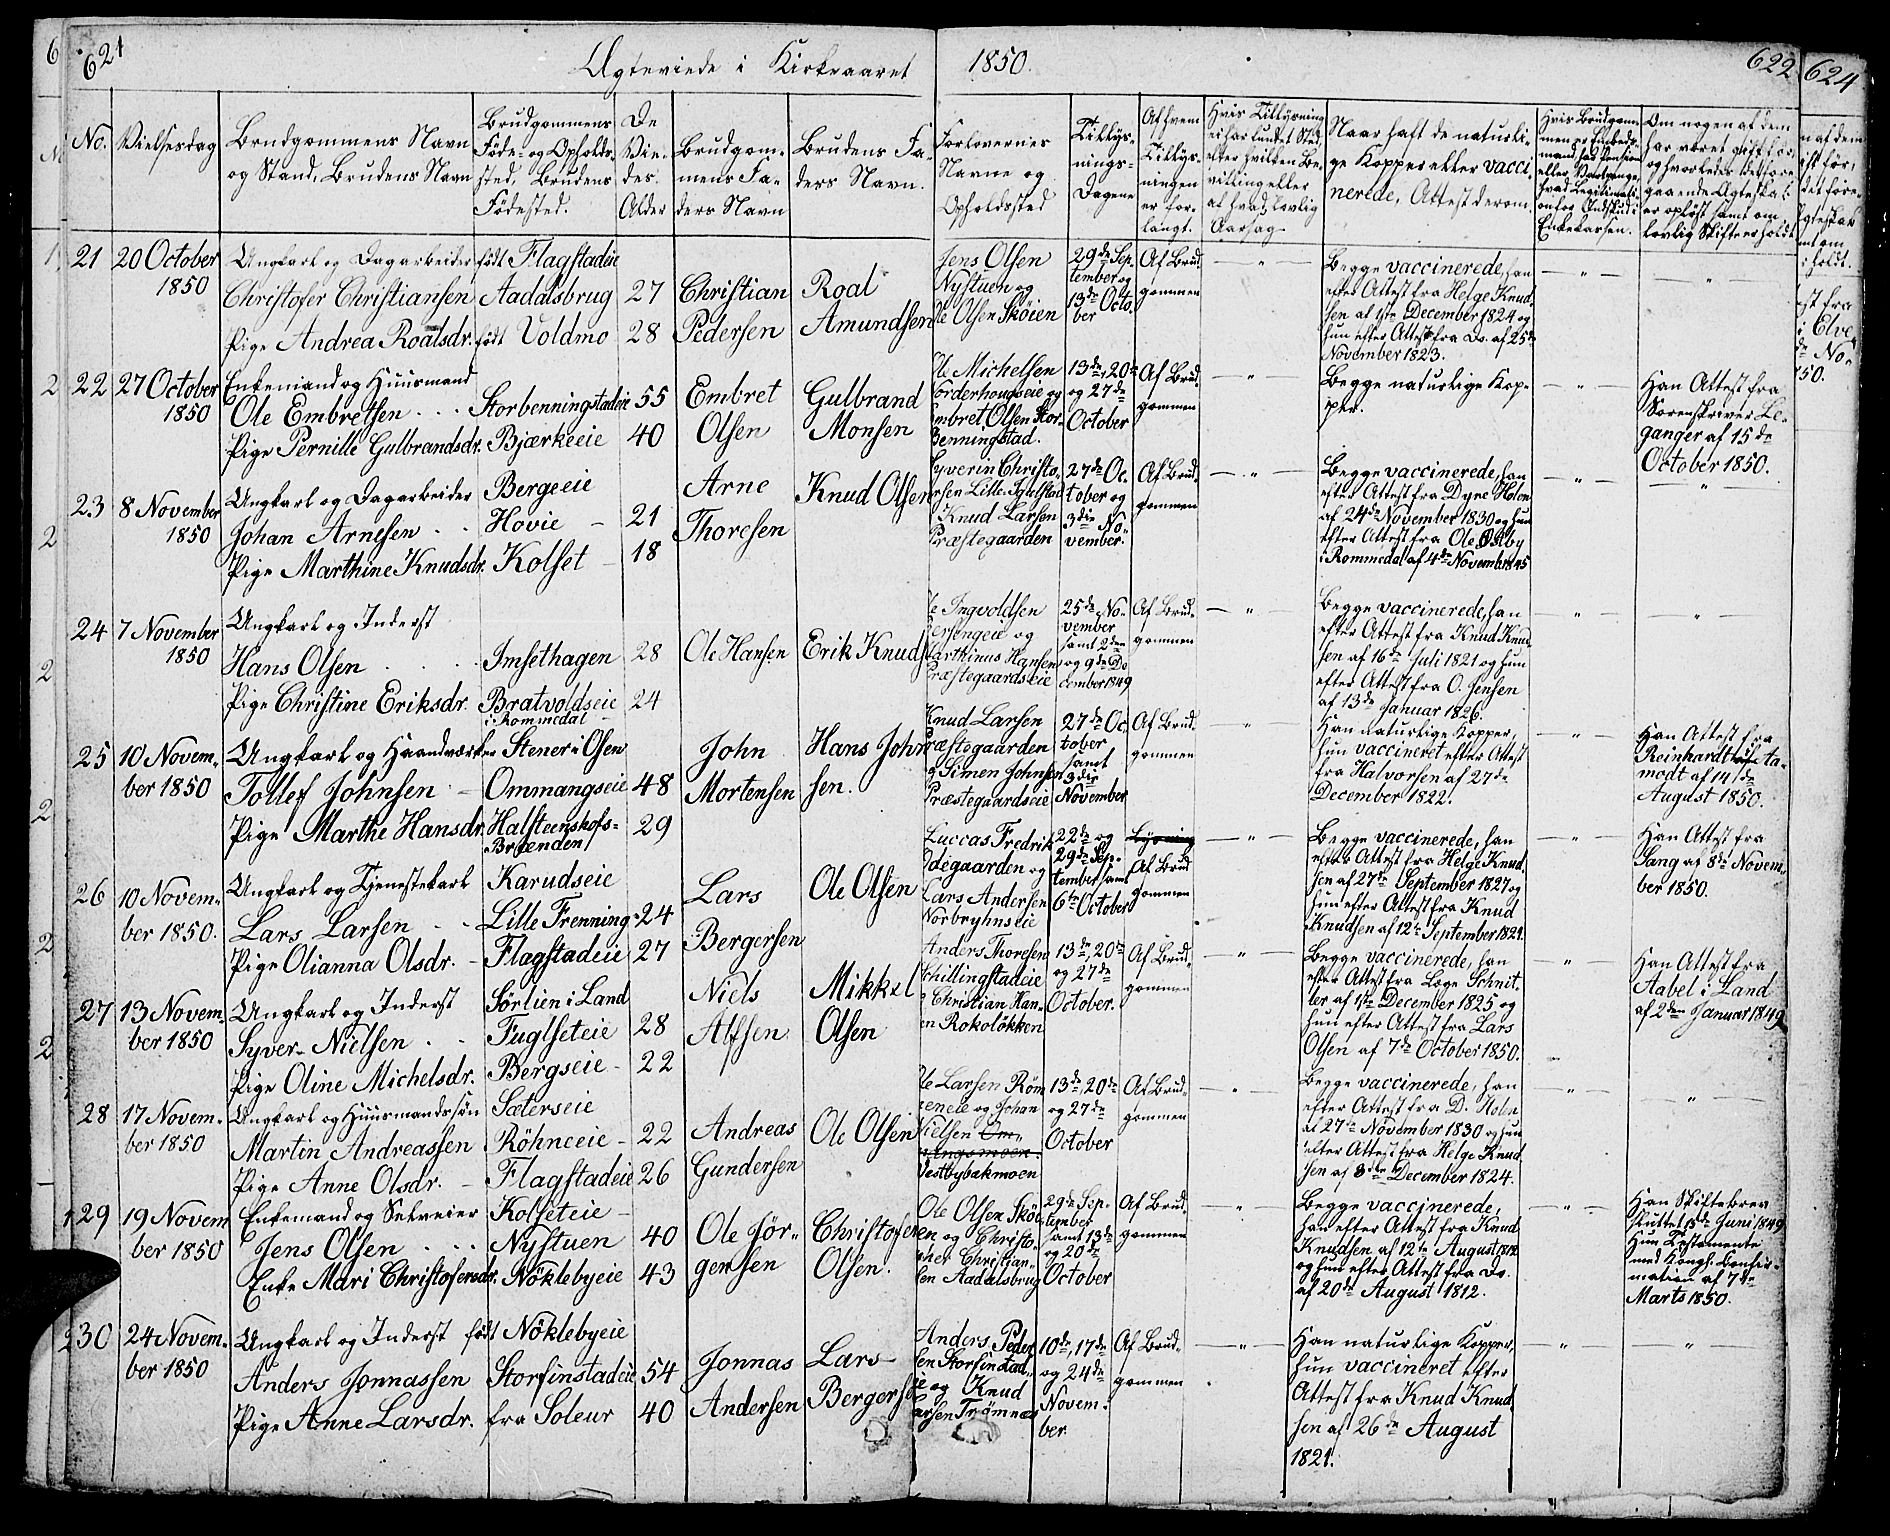 621
Ægteviede i Kirkeaaret 1850.
622
624
No.
Vielsesdag
Brudgommens Navn
og Stand, Brudens Navn
Brudgommens
Føde- og Opholds-
sted, Brudens
Fødested.
De
Vie-
des
Alder
Brudgom-
mens Fa-
ders Navn
Brudens Fa-
ders Navn.
Forlovernes
Navne og
Opholdssted
Tillys-
nings-
Dagene
Af hvem
Tillys-
ningen
er for-
langt.
Hvis Tillysning
ei har fundet Sted,
efter hvilken Be-
villing eller
af hvad lovlig
Aarsag
Naar haft de naturli-
ge Kopper eller vacci-
nerede, Attest derom.
Hvis Brudgom-
men er Embeds-
mand har Pension
eller Vartpenge,
hvad Legitimati-
on for Indskud i
Enkekassen.
Om nogen af dem
har været gift før,
og hvorledes det fore-
gaaende Ægteskab
er opløst samt om
lovlig Skifte er holdt
21
20 October
1850
Ungkarl og Dagarbeider
Christofer Christiansen
Pige Andrea Roalsdr.
født Flagstadeie
Aadalsbrug
født Voldmo
27
28
Christian
Pedersen
Roal
Amundsen
Jens Olsen
Nystuen og
Ole Olsen Skøien
29de Sep-
tember og
13de Octo-
ber
Af Brud-
gommen
Begge vaccinerede, han
efter Attest fra Helge Knud-
sen af 1ste December 1824 og
hun efter Attest fra Do. af 25de
November 1823.
22
27 October
1850
Enkemand og Huusmand
Ole Embretsen
Pige Pernille Gulbrandsdr.
Storbenningstadeie
Bjærkeeie
55
40
Embret
Olsen
Gulbrand
Monsen
Ole Michelsen
Norderhougseie og
Embret Olsen Stor-
benningstad.
13de, 20de
og 27de
October
Af Brud-
gommen
Begge naturlige Kop-
per.
Han Attest fra
Sorenskriver Le-
ganger af 15de
October 1850.
23
8 November
1850
Ungkarl og Dagarbeider
Johan Arnesen
Pige Marthine Knudsdr.
Bergeeie
Hovie
Kolset
21
18
Arne
Thoresen
Knud Olsen
Syverin Christo-
Knud Larsen
Præstegaarden
27de Oc-
tober og
3die No-
vember.
Af Brud-
gommen
Begge vaccinerede, han
efter Attest fra Dyne Holen
af 24de November 1830 og hun
efter Attest fra Ole Østby
i Rommedal af 4de November 1845
24
7 November
1850
Ungkarl og Inderst
Hans Olsen
Pige Christine Eriksdr.
Imsethagen
Bratvoldseie
i Rommedal
28
24
Ole Hansen
Erik Knuds.
Ole Ingvoldsen
og
Marthinus Hansen
Præstegaardseie
25de No-
vember
samt 2den
og 9de De-
cember 1849
Af Brud-
gommen
Begge vaccinerede, han
efter Attest fra Knud Knud-
sen af 16de Juli 1821 og hun
efter Attest fra O. Jensen
af 13de Januar 1826.
25
10 Novem-
ber 1850
Ungkarl og Haandværker
Tollef Johnsen
Pige Marthe Hansdr.
Stener i Osen
Ommangseie
Halsteenshofs-
Brænden
48
29
John
Mortensen
Hans John-
sen.
Knud Larsen
Præstegaarden
og Simen Johnsen
Præstegaardseie
27de Oc-
tober
samt
3die
November
Af Brud-
gommen
Han naturlige Kopper,
hun vaccineret efter Attest
fra Halvorsen af 27de
December 1822.
Han Attest fra
Reinhardt i Sta-
modt af 14de
August 1850.
26
10 Novem-
ber 1850.
Ungkarl og Tjenestekarl
Lars Larsen
Pige Olianna Olsdr.
Karudseie
Lille Frenning
Flagstadeie
24
27
Lars
Bergersen
Ole Olsen
Luccas Fredrik
Ødegaarden og
Lars Andersen
Norbryhnseie
22de og
29de Sep-
tember samt
6te October
Af Brud-
gommen
Begge vaccinerede, han
efter Attest fra Helge Knud-
sen af 27de September 1827 og
hun efter Attest fra Knud
Knudsen af 12te September 1824.
Han Attest fra
Sang af 8de Novem-
ber 1850.
27
13 Novem-
ber 1850
Ungkarl og Inderst
Syver Nielsen
Pige Oline Michelsdr.
Sørlien i Land
Fuglseteie
Bergseie
28
22
Niels
Alfsen
Mikkel
Olsen
Anders Thoresen
Schillingstadeie
og Christian Han-
sen Rokoløkken
13de, 20de
og 27de
October.
Af Brud-
gommen
Begge vaccinerede, han
efter Attest fra Læge Schnit-
ler af 1ste December 1825 og
hun efter Attest fra Lars
Olsen af 7de October 1850.
Han Attest fra
Aabel i Land
af 2den Januar 1849
28
17 Novem-
ber 1850
Ungkarl og Huusmandssøn
Martin Andreassen
Pige Anne Olsdr.
Sæterseie
Röhneeie
Flagstadeie
22
26
Andreas
Gundersen
Ole Olsen
Ole Larsen Røm-
eneie og Johan
Nielsen
Vestbybakmoen
13de, 20de
og 27de
October
Af Brud-
gommen
Begge vaccinerede, han
efter Attest fra D. Holen
af 27de November 1830 og hun
efter Attest fra Helge Knud-
sen af 8de December 1824.
29
19 Novem-
ber 1850
Enkemand og Selveier
Jens Olsen
Enke Mari Christofersdr.
Kolseteie
Nystuen
Nöklebyeie
40
43
Ole Jör-
gensen
Christofer
Olsen.
Ole Olsen Skøi-
en og Christo-
pher Christian-
sen Aadalsbrug
29de Sep-
tember
samt 13de
og 20de
October
Af Brud-
gommen
Begge vaccinerede,
han efter Attest fra Knud
Knudsen af 12te August 1812
og hun efter Attest fra Do.
af 20de August 1812.
Han Skiftebrev
sluttet Juni 1849
Hun Testamente
med Kongl. Confir-
mation af 7de
Marts 1850.
30
24 Novem-
ber 1850
Ungkarl og Inderst
Anders Jonnassen
Pige Anne Larsdr.
født Nöklebyeie
Storfinstadeie
fra Soleur
54
40
Jonnas
Andersen
Lars
Bergersen
Anders Peder-
sen Storfinstad-
eie og Knud
Larsen Trømnes
10de, 17de
og 24de
Novem-
ber
Af Brud-
gommen
Han naturlige Kopper,
hun vaccineret efter
Attest fra Knud Knud-
sen af 26de August
1821.